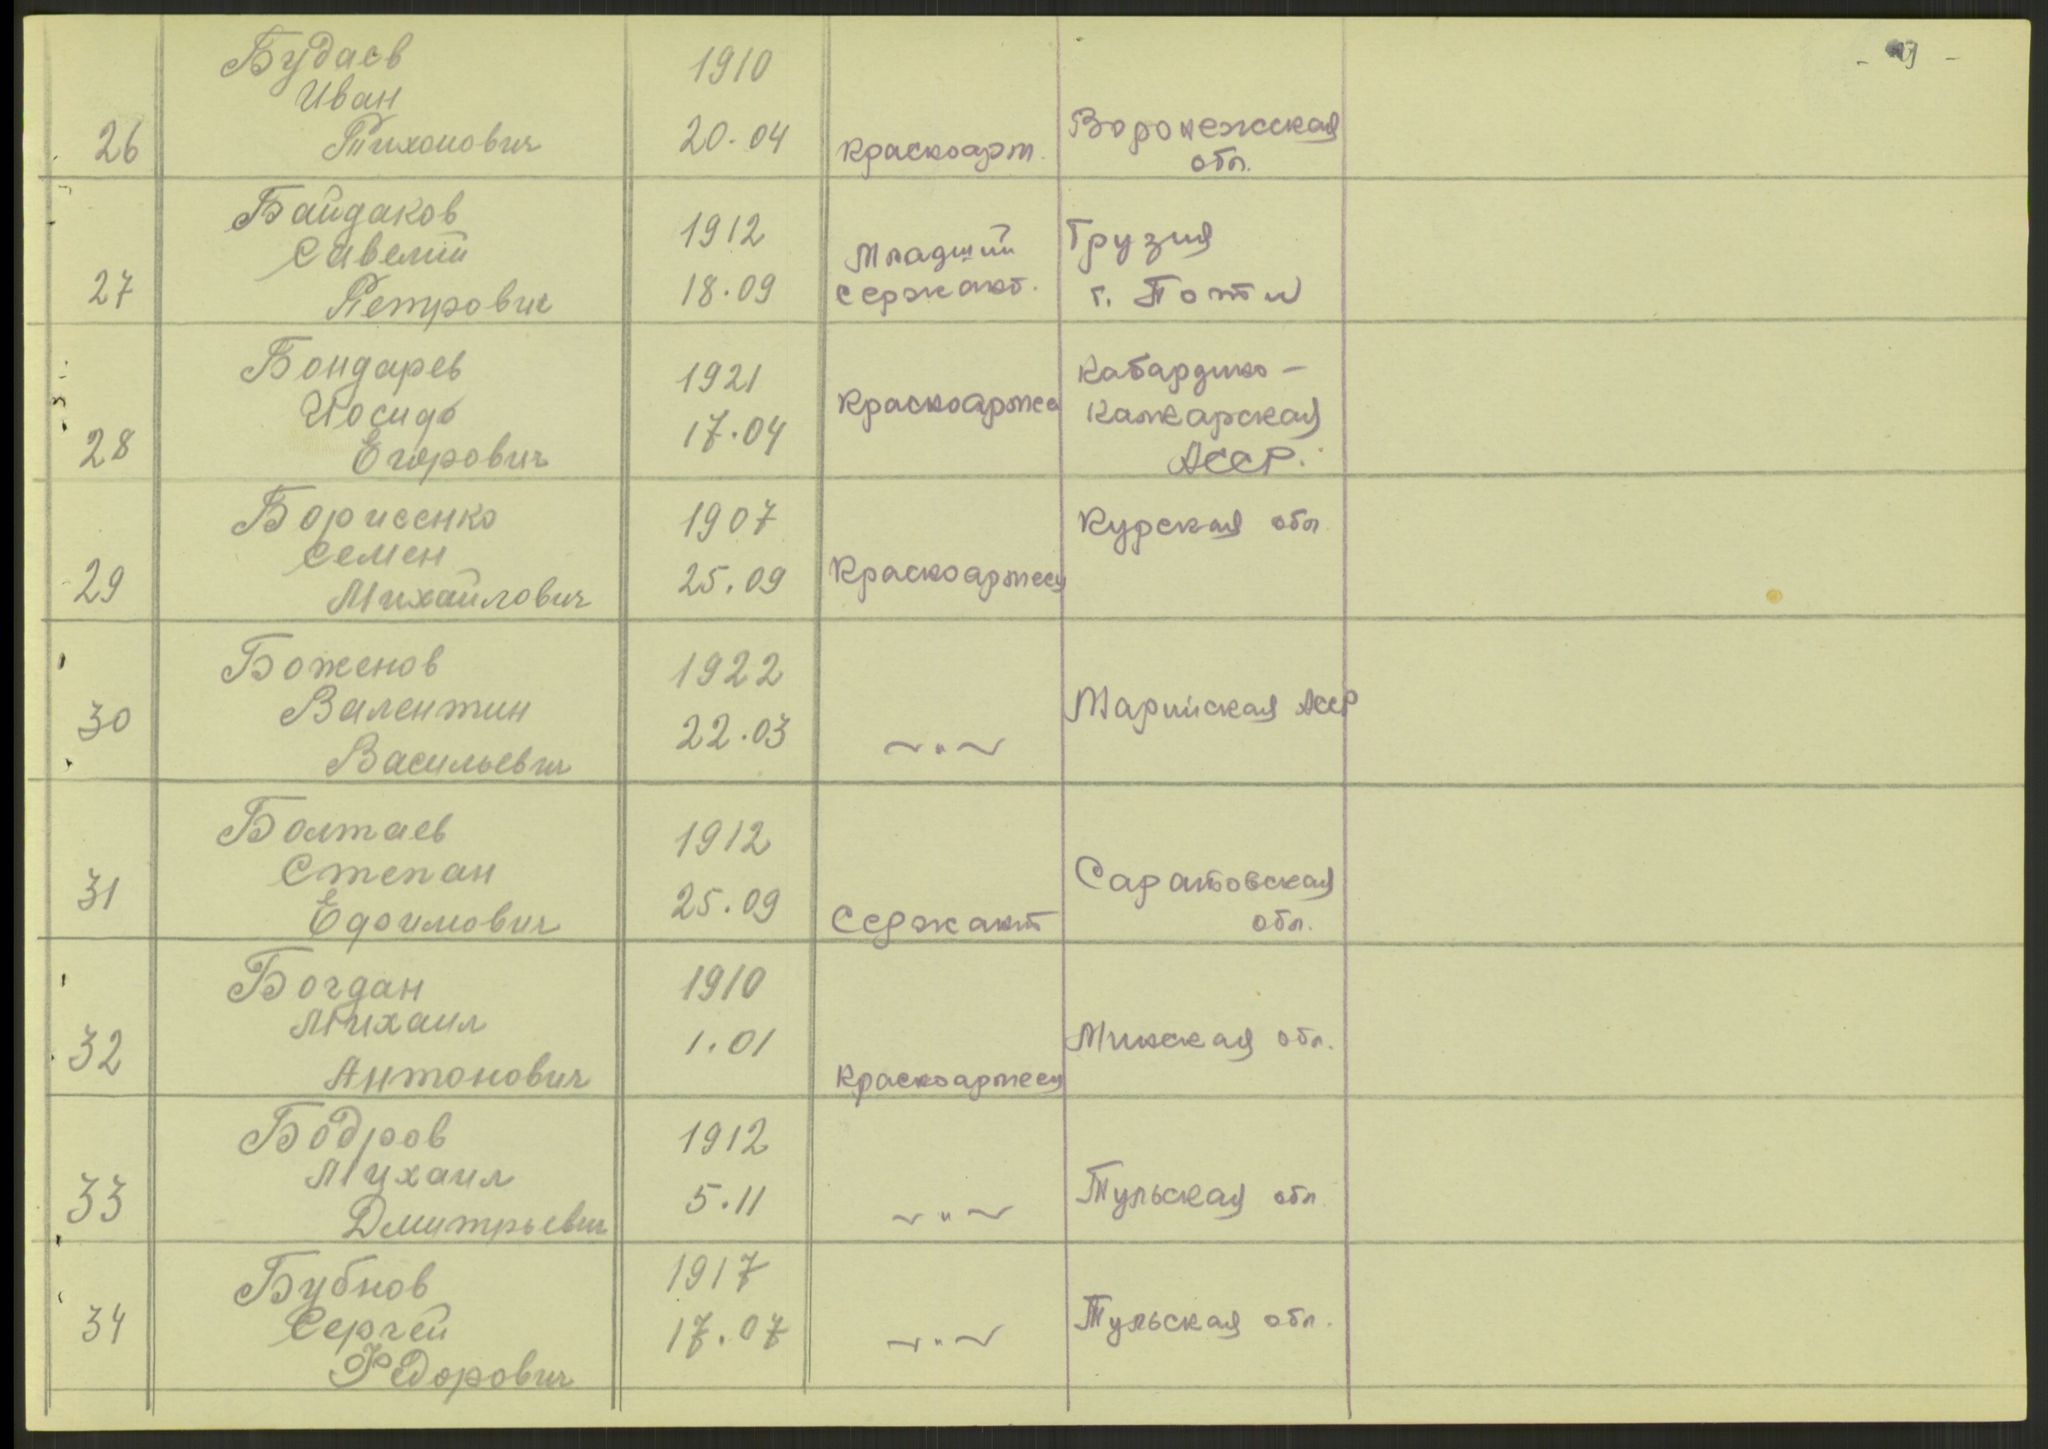 26
Будаев
Иван
Тихонович
1910
20.04
красноарм.
Воронежская
обл.
27
Байдаков
Савелий
Петрович
1912
18.09
Младший
сержант.
Грузия
г. Поти
28
Бондарев
Иосиф
Егорович
1921
17.04
красноармее
Кабардино-
Калкарская
АССР.
29
Борисенко
Семен
Михайлович
1907
25.09
красноармеец
Курская обл.
30
Боженов
Валентин
Васильевич
1922
22.03
~"~
Марийская АССР
31
Болтаев
Степан
Ефимович
1912
25.09
Сержант
Саратовская
обл.
32
Богдан
Михаил
Антонович
1910
1.01
красноармеец
Минская обл.
33
Бодров
Михаил
Дмитрьевич
1912
5.11
~"~
Тульская обл
34
Бубнов
Сергей
Федорович
1917
17.07
~"~
Тульская обл.